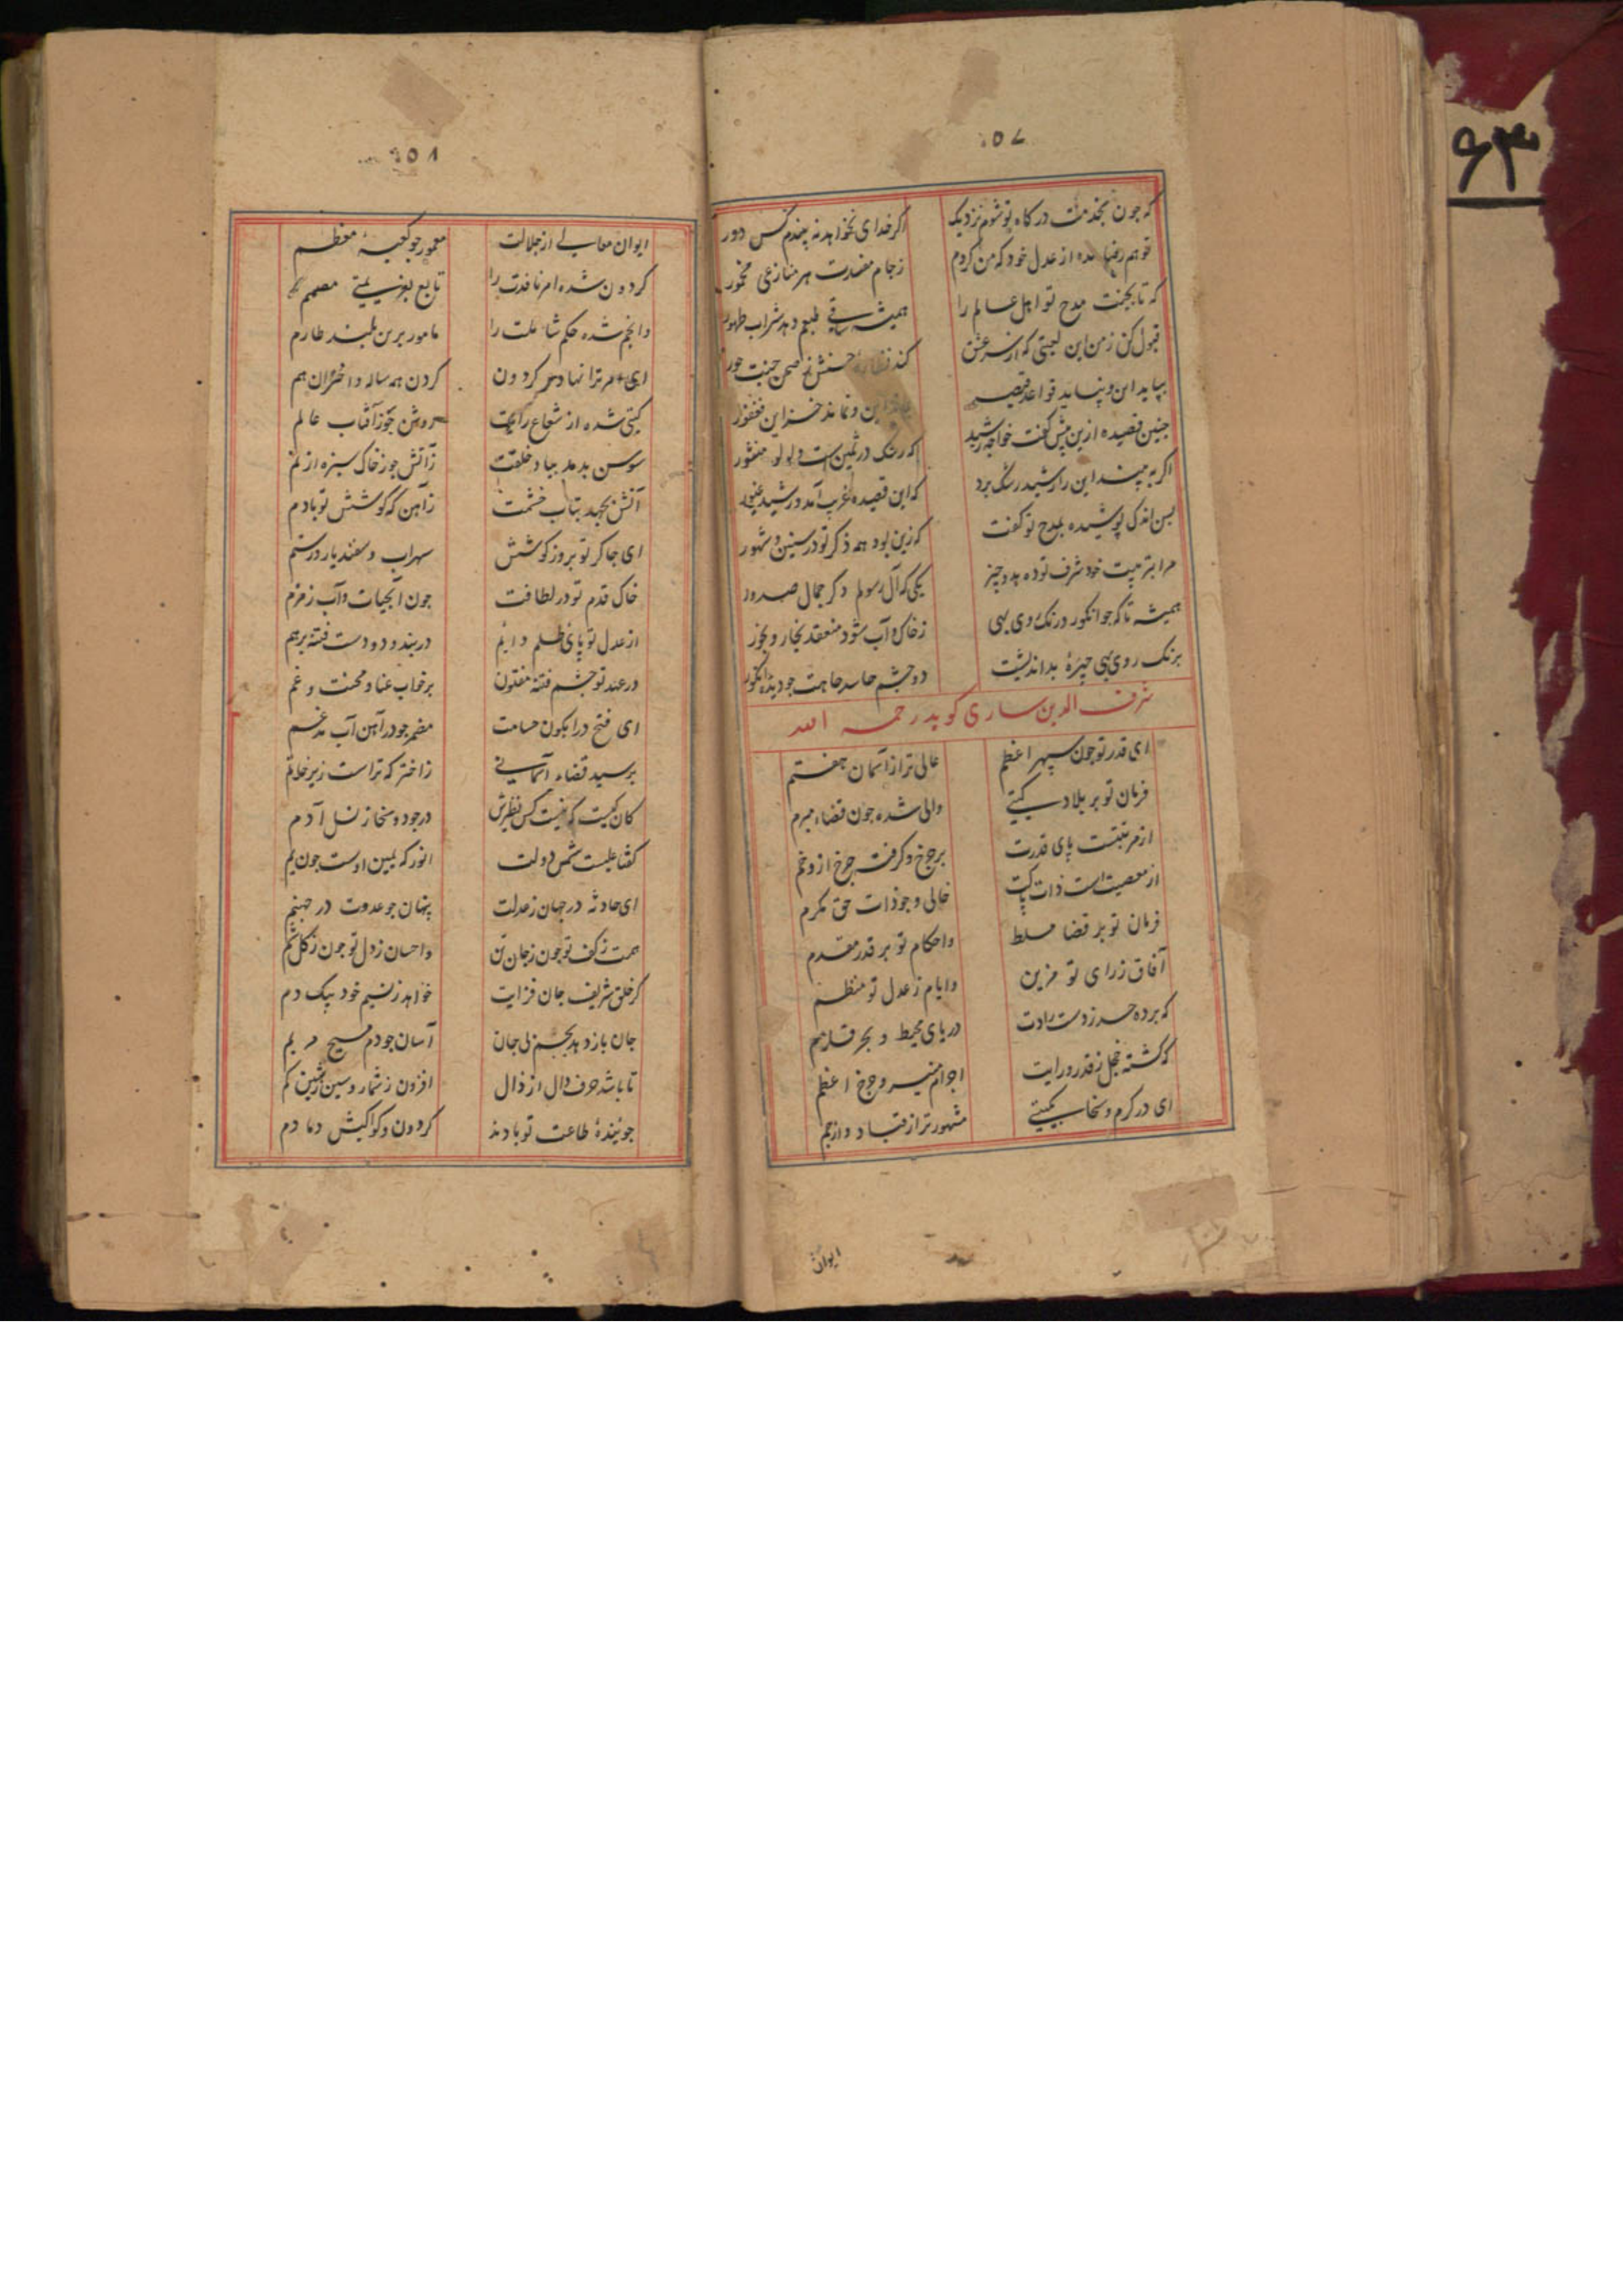 ۶۳
۵۷
که جون بخدمت درکاه تو شوم نزدیک اکر خدای نخواهد نه پیندم کس دور
تو هم رضا مده از عدل خود که من کردم زجام مفسدت هر منازعی مخمور
که تا بجنت مدح تو اهل عالم را همیشه ساقی طبعم دهد شراب طهور
قبول کن زمن این لعبتی که از سر عشق کند نظاره حسنش ز صحن جنت حور
بپاید این و نپاید قواعد قیصر بماند این و نماند خزاین فغفور
جنین قصیده ازین پیش کفت خواجه رشید که رشک در ثمین است و لولو منثور
اکر به بیند این را رشید رشک برد که این قصیده غرب آمد و رشید غیور
بس اندک پوشیده مدح تو کفت که زین بود همه ذکر تو در سنین و شهور
مرا بتربیت خود شرف تو ده بدو چیز یکی که آل رسولم دکر جمال صدور
همیشه تا که جو انکور در نک روی بهی زخاک و آب شود منعقد بخار و بخور
برنک روی بهی چهرهٔ بداندیشت دو چشم حاسد جاهت جو دیدهٔ انکور
شرف الدین ساری کوید رحمه الله
ای قدر تو جون سپهر اعظم عالی تر از آسمان هفتم
فرمان تو بر بلاد کیتی والی شده جون قضاء مبرم
از مرتبتست پای قدرت بر جرخ و کرفت جرخ ازو خم
از معصیت است ذات پاکت خالی و جو ذات حق مکرم
فرمان تو بر قضا مسلط واحکام تو بر قدر مقدم
آفاق زرای تو مزین وایام زعدل تو منظم
که برده حسد زدست رادت دریای محیط و بحر قلزم
که کشته خجل زقدر و رایت اجرام منیر و جرخ اعظم
ای در کرم و سخا بکیتی مشهورتر از قباد و از جم
ایوان
۵۸
ایوان معالی از جلالت معمور جو کعبهٔ معظم
کردون شده امر نافذت را تابع بعزیمتی مصمم
وانجم شده حکم شاملت را مامور برین بلند طارم
ای امر ترا نهاده سر کردون کردن همه ساله و اختران هم
کیتی شده از شعاع رایت روشن جو ز آفتاب عالم
سوسن بدمد بیاد خلقت زآتش جو زخاک سبزه از نم
آتش بجهد بتاب خشمت زآهن که کوشش تو بادم
ای جاکر تو بروز کوشش سهراب و سفندیار و رستم
خاک قدم تو در لطافت جون آبحیات و آب زمزم
از عدل تو پای ظلم دایم در بند و دو دست فتنه برهم
در عهد تو چشم فتنه مفتون بر خواب عنا و محنت و غم
ای فتح در آبکون حسامت مضمر جو در آهن آب مدغم
پرسید قضاء آسمانی زاختر که تراست زیر خاتم
کان کیست که نیست کس نظیرش در جود و سخا ز نسل آدم
کفتا علیست شمس دولت انور که یمین اوست جون یم
ای حادثه در جهان زعدلت پنهان جو عدوت در جهنم
همت زکف تو جون زجان تن واحسان زدل تو جون زکل شم
کر خلق شریف جان فزایت خواهد زنسیم خود بیک دم
جان باز دهد بجسم بی جان آسان جو دم مسیح مریم
تا باشد حرف دال از ذال افزون زشمار و سین زشین کم
جویندهٔ طاعت تو بادند کردون و کواکبش دمادم